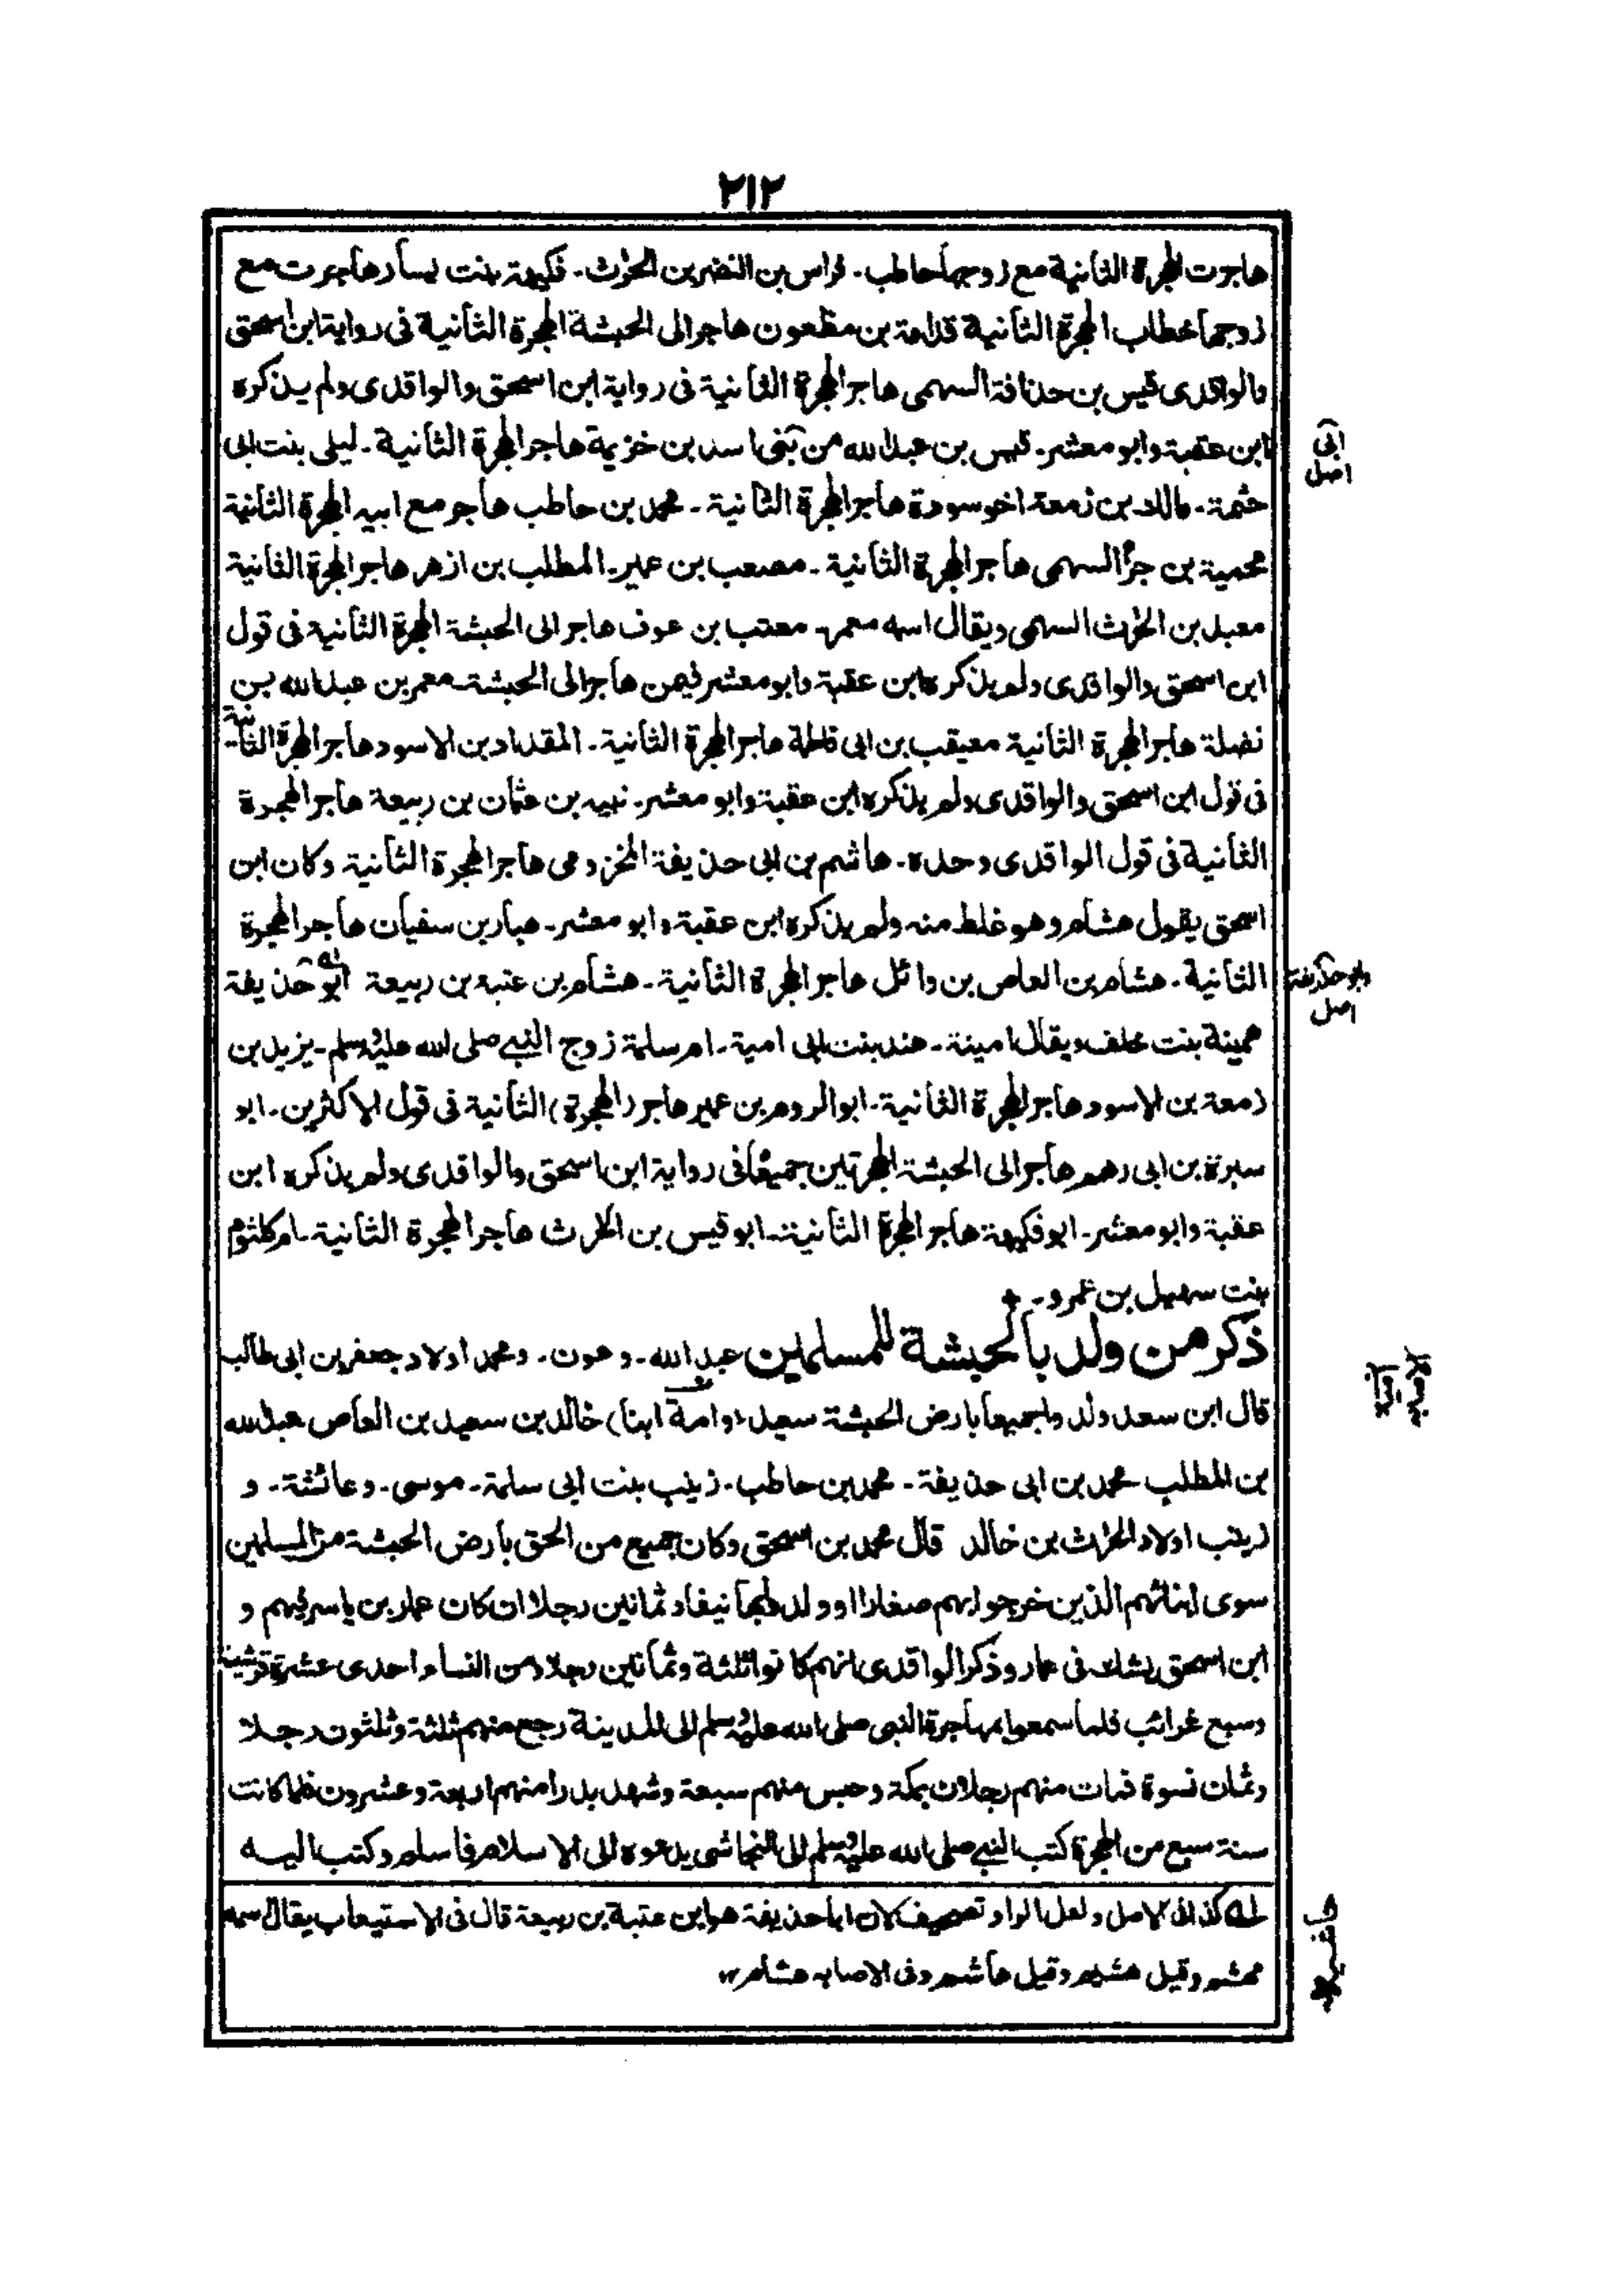 ٢١٢
هاجرت الهجرة الثانية مع زوجها حاطب - فراس بن النضر بن الحٰرث - فكيهة بنت يسار هاجرت مع
زوجها خطاب الهجرة الثانية قدامة بن مظعون هاجر الى الحبشة الهجرة الثانية فى رواية ابن اسحٰق
والواقدى قيس بن حذافة السهمى هاجر الهجرة الثانية فى رواية ابن اسحٰق والواقدى ولم يذكره
ابن عقبة وابو معشر - قيس بن عبد الله من بنى اسد بن خزيمة هاجر الهجرة الثانية - ليلى بنت ابى
حثمة - مالك بن زمعة اخو سودة هاجر الهجرة الثانية - محمد بن حاطب هاجر مع ابيه الهجرة الثانية
محمية بن جزأ السهمى هاجر الهجرة الثانية - مصعب بن عمير - المطلب بن ازهر هاجر الهجرة الثانية
معبد بن الحٰرث السهمى ويقال اسمه معمر - معتب بن عوف هاجر الى الحبشة الهجرة الثانية فى قول
ابن اسحٰق والواقدى ولم يذكره ابن عقبة وابو معشر فيمن هاجر الى الحبشة - معمر بن عبد الله بن
نضلة هاجر الهجرة الثانية معيقب بن ابى فاطمة هاجر الهجرة الثانية - المقداد بن الاسود هاجر الهجرة الثانية
فى قول ابن اسحٰق والواقدى ولم يذكره ابن عقبة وابو معشر - نبيه بن عثمان بن ربيعة هاجر الهجرة
الثانية فى قول الواقدى وحده - هاشم بن ابى حذيفة المخزومى هاجر الهجرة الثانية وكان ابن
اسحٰق يقول هشام وهو غلط منه ولم يذكره ابن عقبة وابو معشر - هبار بن سفيان هاجر الهجرة
الثانية - هشام بن العاص بن وائل هاجر الهجرة الثانية - هشام بن عتبه بن ربيعة ابو حذيفة
همينة بنت خلف ويقال امينة - هند بنت ابى امية - ام سلمة زوج النبى صلى الله عليه وسلم - يزيد بن
زمعة بن الاسود هاجر الهجرة الثانية - ابو الروم بن عمير هاجر (الهجرة) الثانية فى قول الاكثرين - ابو
سبرة بن ابى رهم هاجر الى الحبشة الهجرتين جميعًا فى رواية ابن اسحٰق والواقدى ولم يذكره ابن
عقبة وابو معشر - ابو فكيهة هاجر الهجرة الثانية - ابو قيس بن الحٰرث هاجر الهجرة الثانية - ام كلثوم
بنت سهيل بن عمرو -
ذكر من ولد بالحبشة للمسلمين عبد الله - وعون - ومحمد اولاد جعفر بن ابى طالب
قال ابن سعد ولد واجميعا بارض الحبشة سعيد (وامة ابنا) خالد بن سعيد بن العاص عبد الله
بن المطلب محمد بن ابى حذيفة - محمد بن حاطب - زينب بنت ابى سلمة - موسى - وعائشة - و
زينب اولاد الحٰرث بن خالد قال محمد بن اسحٰق وكان جميع من الحق بأرض الحبشة من المسلمين
سوى ابنائهم الذين خرجوا بهم صغارا او ولد وا بها نيفا وثمانين رجلا ان كان عمار بن ياسر فيهم و
ابن اسحٰق يشك فى عمار وذكر الواقدى انهم كانوا ثلثة وثمانين رجلا ومن النساء احدى عشرة قرشية
وسبع غرائب فلما سمعوا بمهاجرة النبى صلى الله عليه وسلم الى المدينة رجع منهم ثلثة وثلثون رجلا
وثمان نسوة فمات منهم رجلان بمكة وحبس منهم سبعة وشهد بدرا منهم اربعة وعشرون فلما كانت
سنة سبع من الهجرة كتب النبى صلى الله عليه وسلم الى النجاشى يدعوه الى الاسلام فاسلم وكتب اليه
له كذا فى الاصل ولعل الواو تصحيف لان ابا حذيفة هو ابن عتبة بن ربيعة قال فى الاستيعاب يقال اسمه
مهشم وقيل هشيم وقيل هاشم وفى الاصابه هشام ١٢
ابى
اصل
وابو حذيفة
اصل